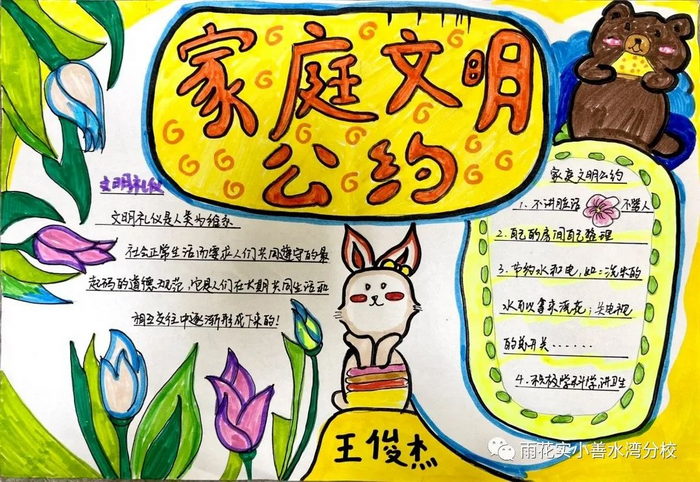 家庭文明
公约
文明礼仪
文明礼仪是人类为维护
社会正常生活而要求人们共同遵守的最
起码的道德规范,它是人们在长期共同生活和
相互交往中逐渐形成下来的!
家庭文明公约
1. 不讲脏话 不骂人
2. 自己的房间自己整理
3. 节约水和电,如:洗米的
水可以拿来浇花;关电视
的总开关......
4. 积极学科学,讲卫生
王俊杰
雨花实小善水湾分校